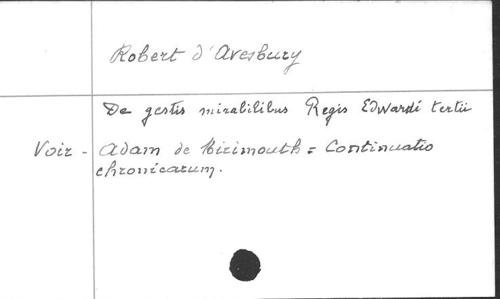 Robert d'Avesbury
De gestis mirabilibus Regis Edwardi tertii
Voir - Adam de Mirimouth = Continuatio
chronicarum.